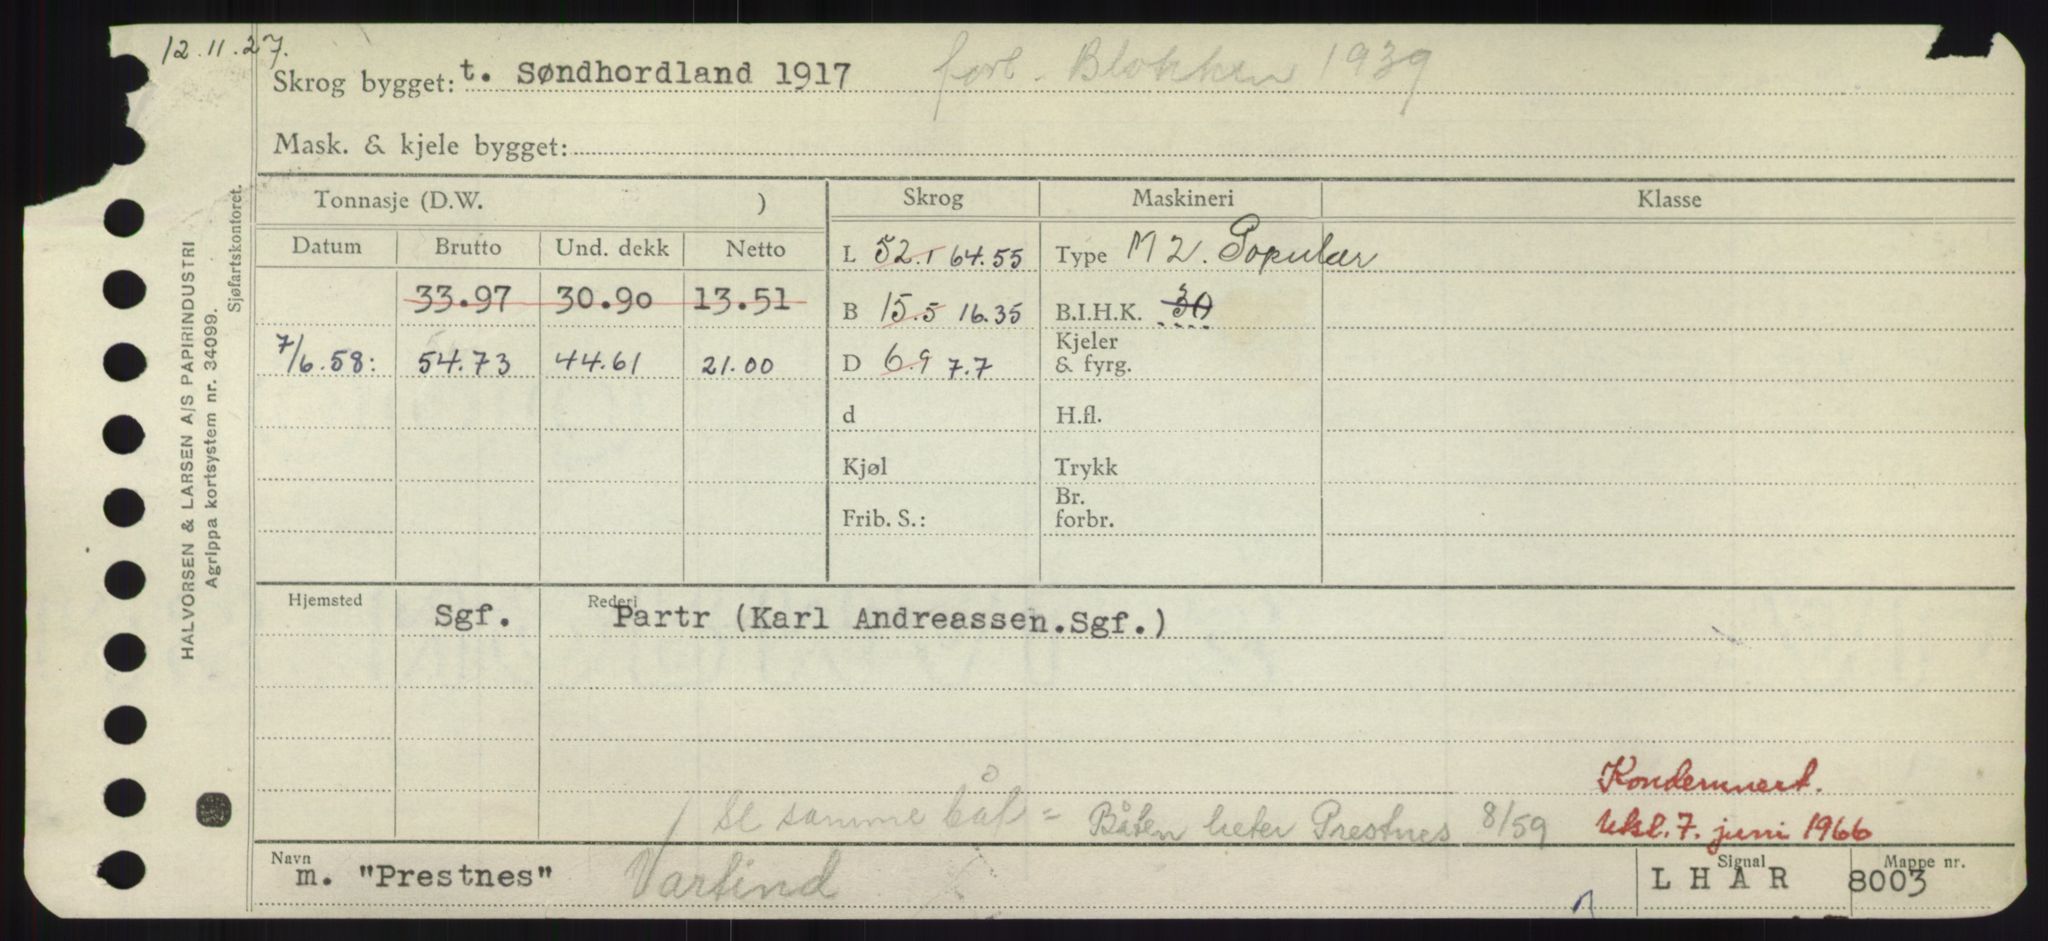 12.11.27.
Skrog bygget: t. Søndhordland 1917 forl. Blokken 1939
Mask. & kjele bygget:
Tonnasje (D.W. ) Skrog Maskineri Klasse
Datum Brutto Und. dekk Netto
L 52.1 64.55 Type M 2. Populær
33.97 30.90 13.51 B 15.5 16.35 B.I.H.K. 30
7/6.58: 54.73 44.61 21.00 D 6.9 7.7 Kjeler & fyrg.
d H.fl.
Kjøl Trykk
Frib. S.: Br. forbr.
Hjemsted Sgf. Rederi Partr (Karl Andreassen.Sgf.)
Kondemnert.
se samme båt = Båten heter Prestnes 8/59 Utsl. 7. juni 1966
Navn m. "Prestnes" Vartind Signal LHAR Mappe nr. 8003
HALVORSEN & LARSEN A/S PAPIRINDUSTRI
Agrippa kortsystem nr. 34099.
Sjøfartskontoret.